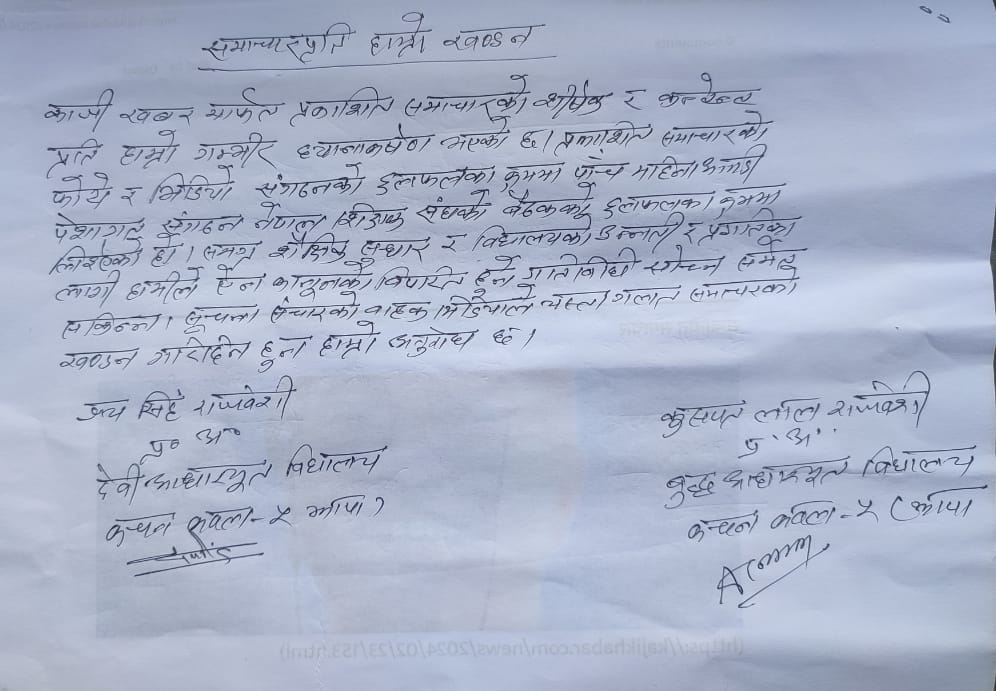 समाचारप्रति हाम्रो खण्डन
काजी खबर मार्फत प्रकाशित समाचारको शीर्षक र कन्टेन्ट
प्रति हाम्रो गम्भीर ध्यानाकर्षण भएको छ। प्रकाशित समाचारको
फोटो र भिडियो संगठनको छलफलका क्रममा पाँच महिना अगाडी
पेशागत संगठन नेपाल शिक्षक संघको बैठकको छलफलका क्रममा
लिइएको हो। समग्र शैक्षिक सुधार र विद्यालयको उन्नती र प्रगतिका
लागी हामीले ऐन कानूनको विपरित हुने गतिविधी सोच्न समेत
सकिन्न। सूचना संचारको वाहक मिडियाले यस्ता गलत समाचारको
खण्डन गरिदिन हुन हाम्रो अनुरोध छ।
जय सिंह राजवंशी
प्र० अ०
देवी आधारभूत विद्यालय
कचन कवल - ५ झापा)
कुसपत लाल राजवंशी
प्र. अ.
बुद्ध आधारभूत विद्यालय
कचन कवल - ५ (झापा
(https://kajikhabar.com/news/2024/02/23/153.html)